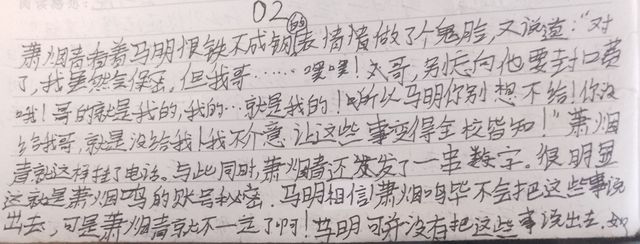 02
萧烟青看着马明恨铁不成钢的表情悄悄做了个鬼脸,又说道:“对
了,我虽然会保密,但我哥……嘿嘿!文哥,别忘向他要封口费
哦!哥的就是我的,我的…就是我的!所以马明你别想不给!你没
给我哥,就是没给我!我不介意让这些事变得全校皆知!”萧烟
青就这样挂了电话。与此同时,萧烟青还发了一串数字。很明显
这就是萧烟鸣的账号和密。马明相信萧烟鸣毕不会把这些事说
出去,可是萧烟青就不一定了啊!马明可并没有把这些事说出去,如